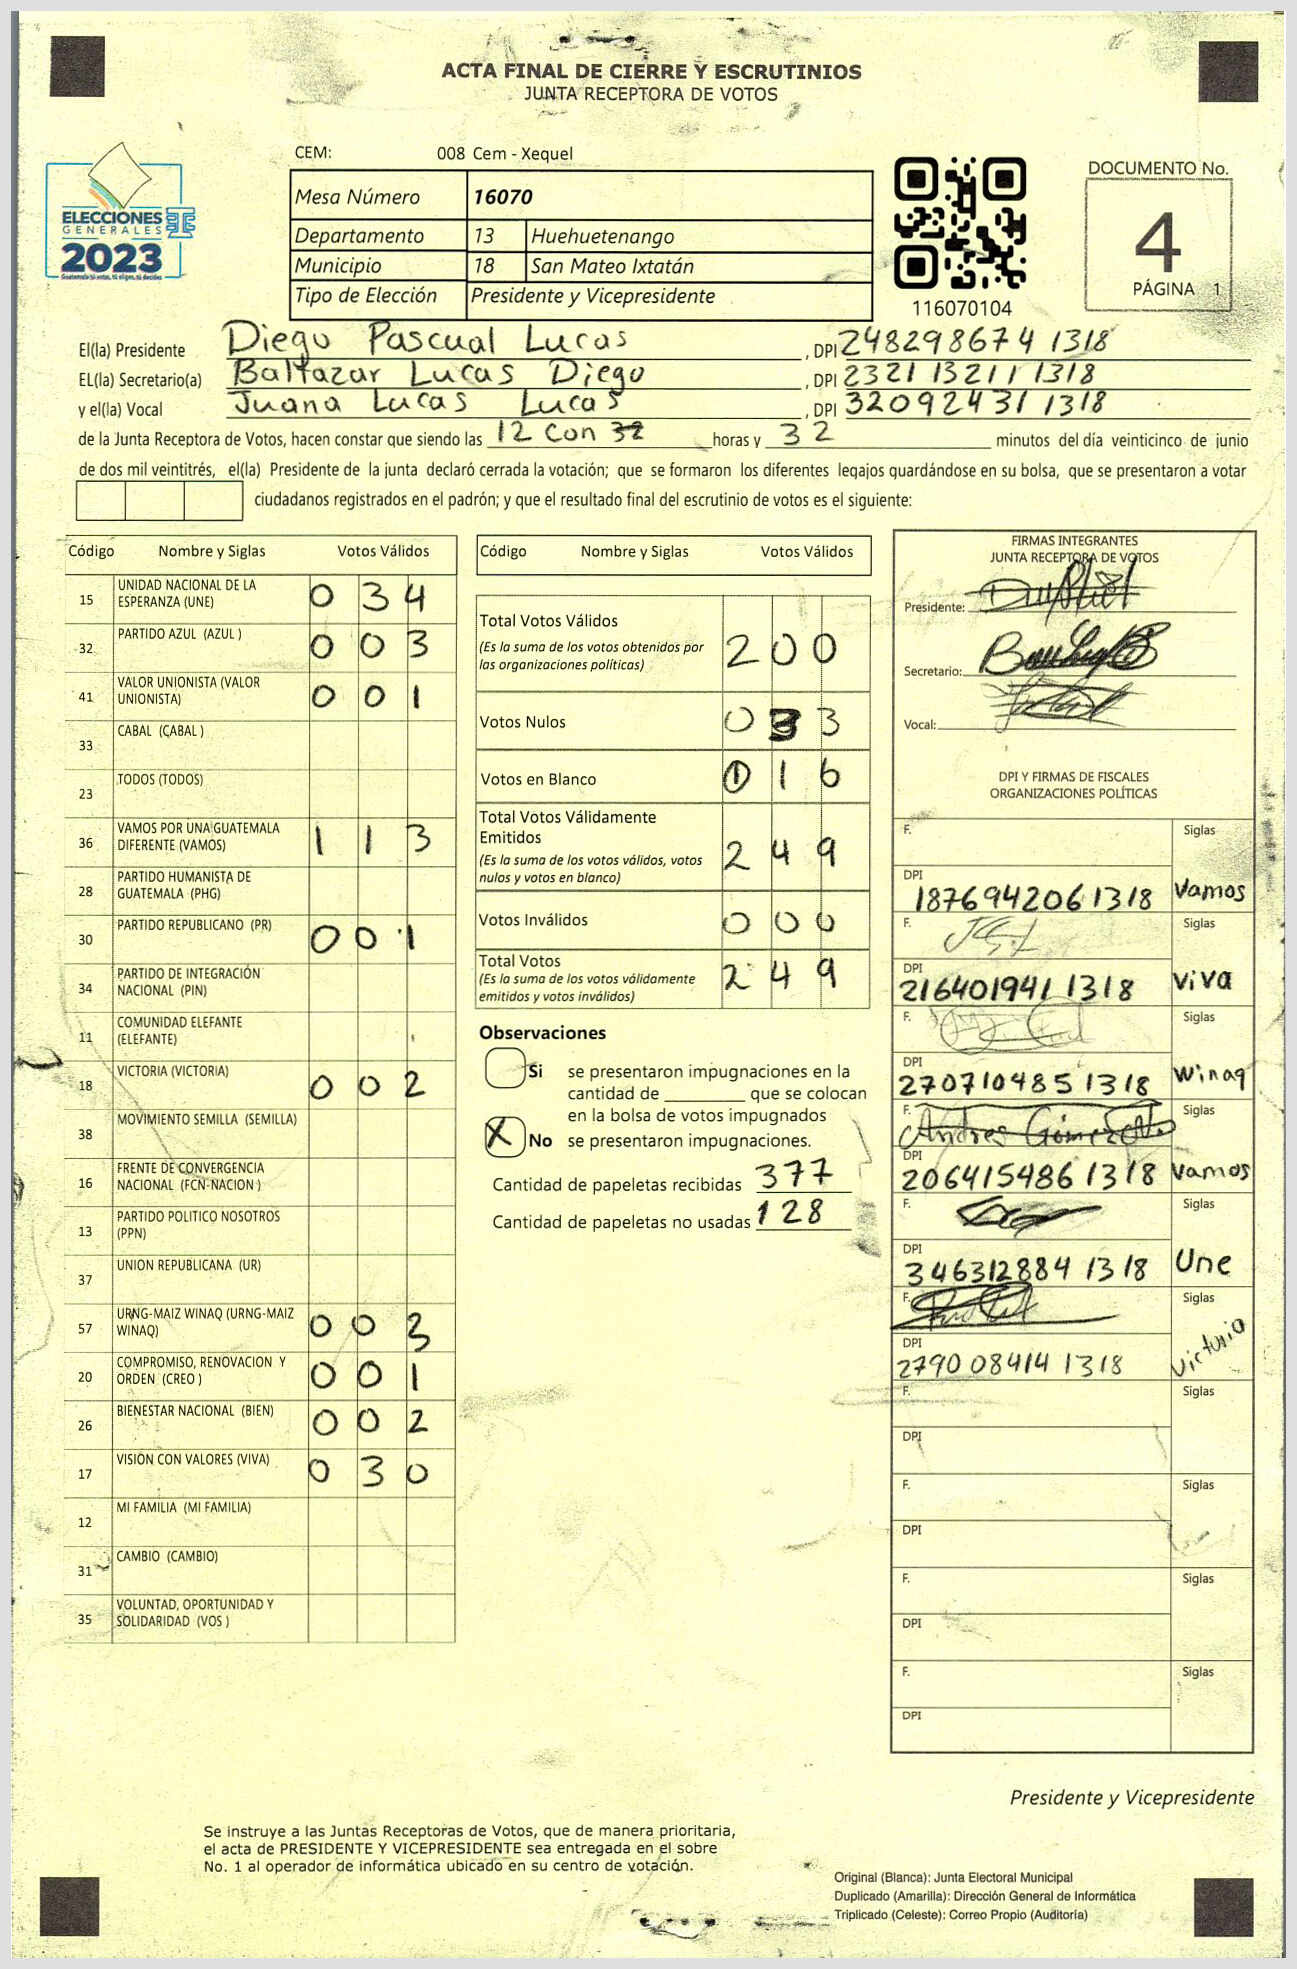 ACTA FINAL DE CIERRE Y ESCRUTINIOS
JUNTA RECEPTORA DE VOTOS
ELECCIONES
GENERALES
2023
CEM: 008 Cem - Xequel
Mesa Número 16070
Departamento 13 Huehuetenango
Municipio 18 San Mateo Ixtatán
Tipo de Elección Presidente y Vicepresidente
116070104
DOCUMENTO No.
4
PÁGINA 1
El(la) Presidente Diego Pascual Lucas , DPI 248298674 1318
EL(la) Secretario(a) Baltazar Lucas Diego , DPI 2321 13211 1318
y el(la) Vocal Juana Lucas Lucas , DPI 32092431 1318
de la Junta Receptora de Votos, hacen constar que siendo las 12 con 32 horas y 32 minutos del día veinticinco de junio
de dos mil veintitrés, el(la) Presidente de la junta declaró cerrada la votación; que se formaron los diferentes legajos guardándose en su bolsa, que se presentaron a votar
ciudadanos registrados en el padrón; y que el resultado final del escrutinio de votos es el siguiente:
Código Nombre y Siglas Votos Válidos
15 UNIDAD NACIONAL DE LA ESPERANZA (UNE) 0 3 4
32 PARTIDO AZUL (AZUL ) 0 0 3
41 VALOR UNIONISTA (VALOR UNIONISTA) 0 0 1
33 CABAL (CABAL )
23 TODOS (TODOS)
36 VAMOS POR UNA GUATEMALA DIFERENTE (VAMOS) 1 1 3
28 PARTIDO HUMANISTA DE GUATEMALA (PHG)
30 PARTIDO REPUBLICANO (PR) 0 0 1
34 PARTIDO DE INTEGRACIÓN NACIONAL (PIN)
11 COMUNIDAD ELEFANTE (ELEFANTE)
18 VICTORIA (VICTORIA) 0 0 2
38 MOVIMIENTO SEMILLA (SEMILLA)
16 FRENTE DE CONVERGENCIA NACIONAL (FCN-NACION )
13 PARTIDO POLITICO NOSOTROS (PPN)
37 UNION REPUBLICANA (UR)
57 URNG-MAIZ WINAQ (URNG-MAIZ WINAQ) 0 0 3
20 COMPROMISO, RENOVACION Y ORDEN (CREO ) 0 0 1
26 BIENESTAR NACIONAL (BIEN) 0 0 2
17 VISION CON VALORES (VIVA) 0 3 0
12 MI FAMILIA (MI FAMILIA)
31 CAMBIO (CAMBIO)
35 VOLUNTAD, OPORTUNIDAD Y SOLIDARIDAD (VOS )
Código Nombre y Siglas Votos Válidos
Total Votos Válidos 2 0 0
(Es la suma de los votos obtenidos por
las organizaciones políticas)
Votos Nulos 0 3 3
Votos en Blanco 0 1 6
Total Votos Válidamente
Emitidos 2 4 9
(Es la suma de los votos válidos, votos
nulos y votos en blanco)
Votos Inválidos 0 0 0
Total Votos 2 4 9
(Es la suma de los votos válidamente
emitidos y votos inválidos)
Observaciones
Si se presentaron impugnaciones en la
cantidad de que se colocan
en la bolsa de votos impugnados
X No se presentaron impugnaciones.
Cantidad de papeletas recibidas 377
Cantidad de papeletas no usadas 128
FIRMAS INTEGRANTES
JUNTA RECEPTORA DE VOTOS
Presidente:
Secretario:
Vocal:
DPI Y FIRMAS DE FISCALES
ORGANIZACIONES POLÍTICAS
F. Siglas
DPI 187694206 1318 Vamos
F. Siglas
DPI 216401941 1318 ViVa
F. Siglas
DPI 270710485 1318 Winaq
F. Andres Gómez Siglas
DPI 206415486 1318 Vamos
F. Siglas
DPI 346312884 1318 Une
F. Siglas
DPI 2790 08414 1318 Victoria
F. Siglas
DPI
F. Siglas
DPI
F. Siglas
DPI
F. Siglas
DPI
Presidente y Vicepresidente
Se instruye a las Juntas Receptoras de Votos, que de manera prioritaria,
el acta de PRESIDENTE Y VICEPRESIDENTE sea entregada en el sobre
No. 1 al operador de informática ubicado en su centro de votación.
Original (Blanca): Junta Electoral Municipal
Duplicado (Amarilla): Dirección General de Informática
Triplicado (Celeste): Correo Propio (Auditoría)